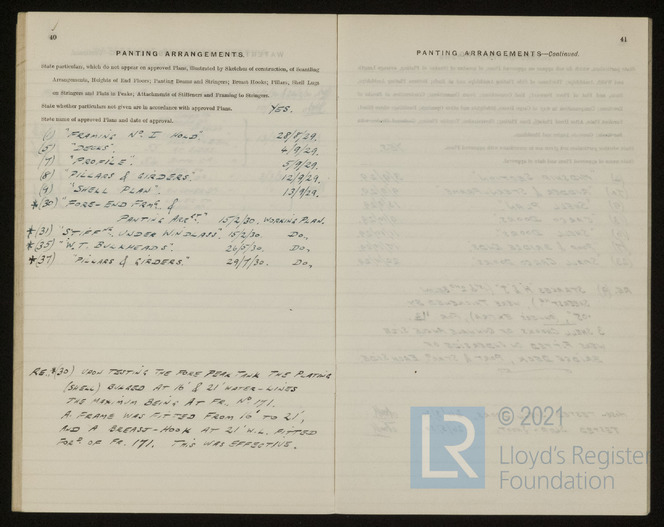 40
PANTING ARRANGEMENTS.
State particulars, which do not appear on approved Plans, illustrated by Sketches of construction, of Boarding
Arrangements, Heights of End Floors; Panting Beams and Stringers; Breast Hooks; Pillars, Shell Lugs
on Stringers and Flats in Peaks, Attachments of Stiffeners and Framing to Stringers.
State whether particulars not given are in accordance with approved Plans. YES.
State name of approved Plans and date of approval.
(1) "FRAMING No. I HOLD" 28/8/29.
(5) "DECKS". 4/9/29.
(7) "PROFILE". 5/9/29.
(8) "PILLARS & GIRDERS." 12/9/29.
(9) "SHELL PLAN". 13/9/29.
*(30) "FORE-END FRMG. &
PANTING ARRGT." 15/2/30. WORKING PLAN.
*(31) "STIFFNG. UNDER WINDLASS". 15/2/30. DO.
*(35) "W.T. BULKHEADS". 26/5/30. DO.
*(37) "PILLARS & GIRDERS." 29/7/30. DO.
RE. *(30) UPON TESTING THE FORE PEAK TANK THE PLATING
(SHELL) BULGED AT 16' & 21' WATER-LINES
THE MAXIMUM BEING AT FR. No 171.
A FRAME WAS FITTED FROM 10' TO 21',
AND A BREAST-HOOK AT 21' W.L. FITTED
FORD. OF FR. 171. THIS WAS EFFECTIVE.
41
PANTING ARRANGEMENTS—Continued.
LR
© 2021
Lloyd's Register
Foundation